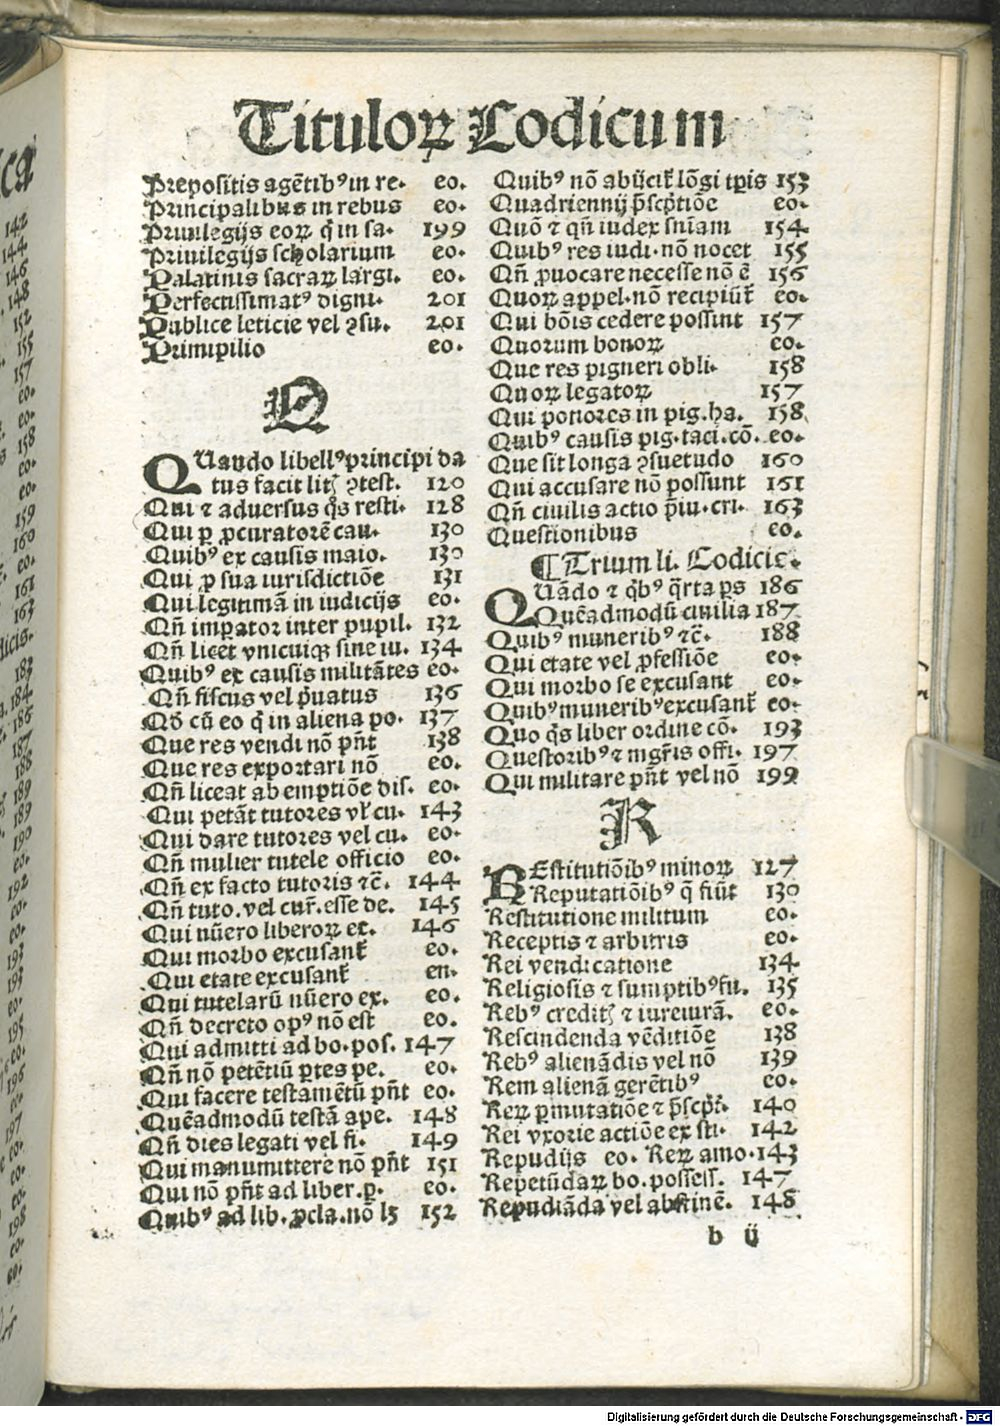 Titulorꝝ Codicum
Prepositis agẽtibꝰ in re· eo.
Principalibus in rebus eo.
Priuilegijs eorꝝ q̃ in sa· 199
Priuilegijs scholarium eo.
Palatinis sacrarꝝ largi. eo.
Perfectissimatꝰ digni· 201
Publice leticie vel ꝯsu. 201
Primipilio eo.
Q
QUando libellꝰ principi da
tus facit lit᷒ ꝯtest. 120
Qui ⁊ aduersus q̃s resti· 128
Qui ꝑ ꝓcuratorẽ cau. 130
Quibꝰ ex causis maio. 130
Qui ꝓ sua iurisdictiõe 131
Qui legitimã in iudicijs eo.
Qñ imꝑator inter pupil. 132
Qñ licet vnicuiqꝫ sine iu. 134
Quibꝰ ex causis militãtes eo.
Qñ fiscus vel p̃uatus 136
Qõ cũ eo q̃ in aliena po. 137
Que res vendi nõ pñt 138
Que res exportari nõ eo.
Qñ liceat ab emptiõe dis. eo.
Qui petãt tutores vl̓ cu. 143
Qui dare tutores vel cu. eo.
Qñ mulier tutele officio eo.
Qñ ex facto tutoris ⁊c̃. 144
Qñ tuto. vel cur̃. esse de. 145
Qui nũero liberorꝝ ec. 146
Qui morbo excusant᷑ eo.
Qui etate excusant᷑ en.
Qui tutelarũ nũero ex. eo.
Qñ decreto opꝰ nõ est eo.
Qui admitti ad bo·pos. 147
Qñ nõ petẽtiũ ꝑtes pe. eo.
Qui facere testamẽtũ pñt eo.
Quẽadmodũ testã ape. 148
Qñ dies legati vel fi. 149
Qui manumittere nõ pñt 151
Qui nõ pñt ad liber.ꝑ. eo.
Quibꝰ ad lib. ꝓcla.nõ lꝫ 152
Quibꝰ nõ abijcit᷑ lõgi tꝑis 153
Quadriennij p̃scp̃tiõe eo.
Quõ ⁊ qñ iudex sñiam 154
Quibꝰ res iudi·nõ nocet 155
Qñ ꝓuocare necesse nõ ẽ 156
Quorꝝ appel·nõ recipiũt᷑ eo.
Qui bõis cedere possint 157
Quorum bonorꝝ eo.
Que res pigneri obli· 158
Quorꝝ legatorꝝ 157
Qui potiores in pig.ha. 158
Quibꝰ causis pig·taci.cõ. eo.
Que sit longa ꝯsuetudo 160
Qui accusare nõ possunt 161
Qñ ciuilis actio p̃iu·cri. 163
Questionibus eo.
¶ Trium li. Codicis.
QUãdo ⁊ q̃bꝰ q̃rta ꝑs 186
Quẽadmodũ ciuilia 187
Quibꝰ muneribꝰ ⁊c̃. 188
Qui etate vel ꝓfessiõe eo.
Qui morbo se excusant eo.
Quibꝰ muneribꝰ excusant᷑ eo.
Quo q̃s liber ordine cõ. 193
Questoribꝰ ⁊ mgr̃is offi. 197
Qui militare pñt vel nõ 199
R
REstitutiõibꝰ minorꝝ 127
Reputatiõibꝰ q̃ fiũt 130
Restitutione militum eo.
Receptis ⁊ arbitris eo.
Rei vendicatione 134
Religiosis ⁊ sumptibꝰ fu. 135
Rebꝰ credit᷒ ⁊ iureiurã. eo.
Rescindenda vẽditiõe 138
Rebꝰ alienãdis vel nõ 139
Rem alienã gerẽtibꝰ eo.
Rerꝝ ꝑmutatiõe ⁊ p̃scp̃t. 140
Rei vxorie actiõe ex sti. 142
Repudijs eo. Rerꝝ amo·143
Repetũdarꝝ bo.possess. 147
Repudiãda vel abstinẽ. 148
b ij
Digitalisierung gefördert durch die Deutsche Forschungsgemeinschaft - DFG